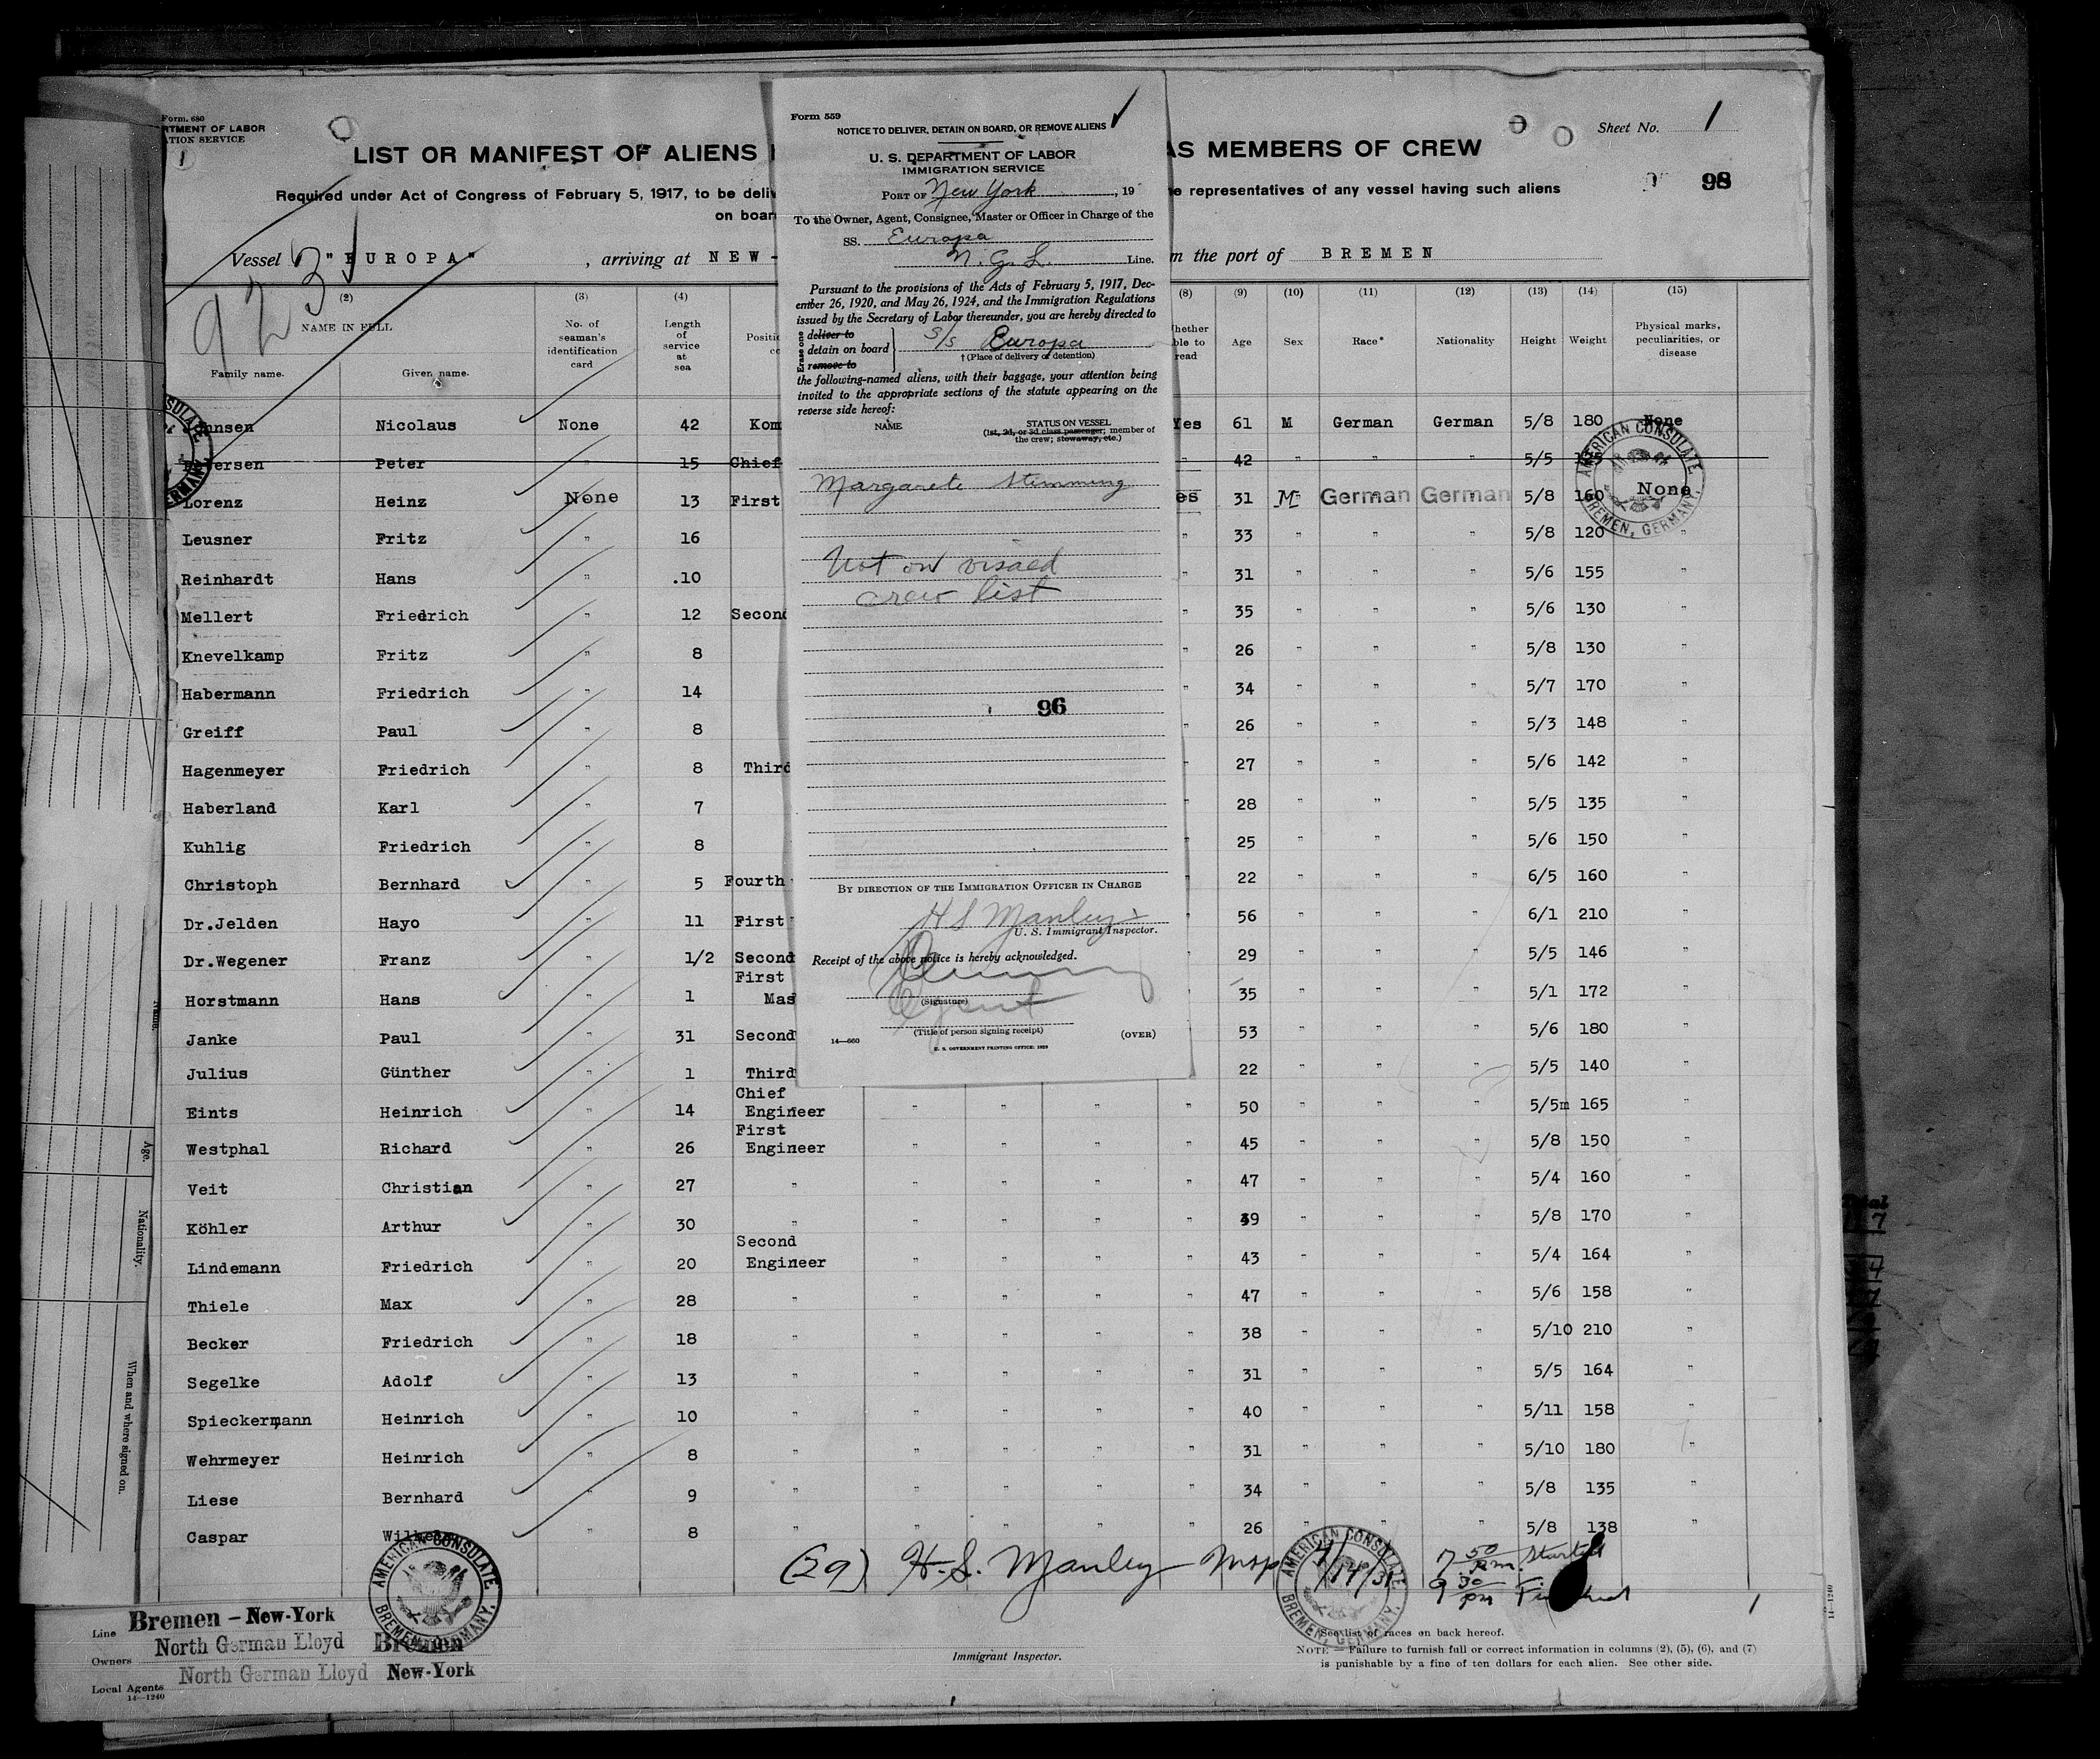 Form. 680
RTMENT OF LABOR
ATION SERVICE
1
LIST OR MANIFEST OF ALIENS
AS MEMBERS OF CREW
Sheet No. 1
98
Required under Act of Congress of February 5, 1917, to be deliv
e representatives of any vessel having such aliens
on boar
Vessel "EUROPA", arriving at NEW-
m the port of BREMEN
923
(2) (3) (4) (8) (9) (10) (11) (12) (13) (14) (15)
NAME IN FULL
Family name. Given name.
No. of seaman's identification card
Length of service at sea
Positi
hether
ble to
read
Age Sex Race* Nationality Height Weight Physical marks, peculiarities, or disease
nsen Nicolaus None 42 Kom Yes 61 M German German 5/8 180 None
ersen Peter " 15 Chief " 42 " " " 5/5
Lorenz Heinz None 13 First es 31 M German German 5/8 160 None
Leusner Fritz " 16 " 33 " " " 5/8 120 "
Reinhardt Hans " .10 " 31 " " " 5/6 155 "
Mellert Friedrich " 12 Second " 35 " " " 5/6 130 "
Knevelkamp Fritz " 8 " 26 " " " 5/8 130 "
Habermann Friedrich " 14 " 34 " " " 5/7 170 "
Greiff Paul " 8 " 26 " " " 5/3 148 "
Hagenmeyer Friedrich " 8 Third " 27 " " " 5/6 142 "
Haberland Karl " 7 " 28 " " " 5/5 135 "
Kuhlig Friedrich " 8 " 25 " " " 5/6 150 "
Christoph Bernhard " 5 Fourth " 22 " " " 6/5 160 "
Dr.Jelden Hayo " 11 First " 56 " " " 6/1 210 "
Dr.Wegener Franz " 1/2 Second " 29 " " " 5/5 146 "
Horstmann Hans " 1 First Mas " 35 " " " 5/1 172 "
Janke Paul " 31 Second " 53 " " " 5/6 180 "
Julius Günther " 1 Third " 22 " " " 5/5 140 "
Eints Heinrich " 14 Chief Engineer " " " " 50 " " " 5/5m 165 "
Westphal Richard " 26 First Engineer " " " " 45 " " " 5/8 150 "
Veit Christian " 27 " " " " " 47 " " " 5/4 160 "
Köhler Arthur " 30 " " " " " 39 " " " 5/8 170 "
Lindemann Friedrich " 20 Second Engineer " " " " 43 " " " 5/4 164 "
Thiele Max " 28 " " " " " 47 " " " 5/6 158 "
Becker Friedrich " 18 " " " " " 38 " " " 5/10 210 "
Segelke Adolf " 13 " " " " " 31 " " " 5/5 164 "
Spieckermann Heinrich " 10 " " " " " 40 " " " 5/11 158 "
Wehrmeyer Heinrich " 8 " " " " " 31 " " " 5/10 180 "
Liese Bernhard " 9 " " " " " 34 " " " 5/8 135 "
Caspar Wilhelm " 8 " " " " " 26 " " " 5/8 138 "
Form 559
NOTICE TO DELIVER, DETAIN ON BOARD, OR REMOVE ALIENS
U. S. DEPARTMENT OF LABOR
IMMIGRATION SERVICE
PORT OF New York, 19
To the Owner, Agent, Consignee, Master or Officer in Charge of the
SS. Europa
N. G. L. Line.
Pursuant to the provisions of the Acts of February 5, 1917, Dec-
ember 26, 1920, and May 26, 1924, and the Immigration Regulations
issued by the Secretary of Labor thereunder, you are hereby directed to
Erase one
deliver to
detain on board S/S Europa
remove to
† (Place of delivery or detention)
the following-named aliens, with their baggage, your attention being
invited to the appropriate sections of the statute appearing on the
reverse side hereof:
NAME
STATUS ON VESSEL
(1st, 2d, or 3d class passenger; member of
the crew; stowaway, etc.)
Margarete Stemming
Not on visaed
crew list
96
BY DIRECTION OF THE IMMIGRATION OFFICER IN CHARGE
H S Manley
U. S. Immigrant Inspector.
Receipt of the above notice is hereby acknowledged.
(Signature)
Agent
(Title of person signing receipt)
(OVER)
14—660
U. S. GOVERNMENT PRINTING OFFICE: 1929
(29) H. S. Manley Insp 4/14/31
7 50 pm. Started
9 30 pm Finished
1
AMERICAN CONSULATE
BREMEN, GERMANY.
Line Bremen - New-York
Owners North German Lloyd Bremen
Local Agents North German Lloyd New-York
14—1240
Immigrant Inspector.
See list of races on back hereof.
NOTE — Failure to furnish full or correct information in columns (2), (5), (6), and (7)
is punishable by a fine of ten dollars for each alien. See other side.
14-1240
Age.
Nationality.
When and where signed on.